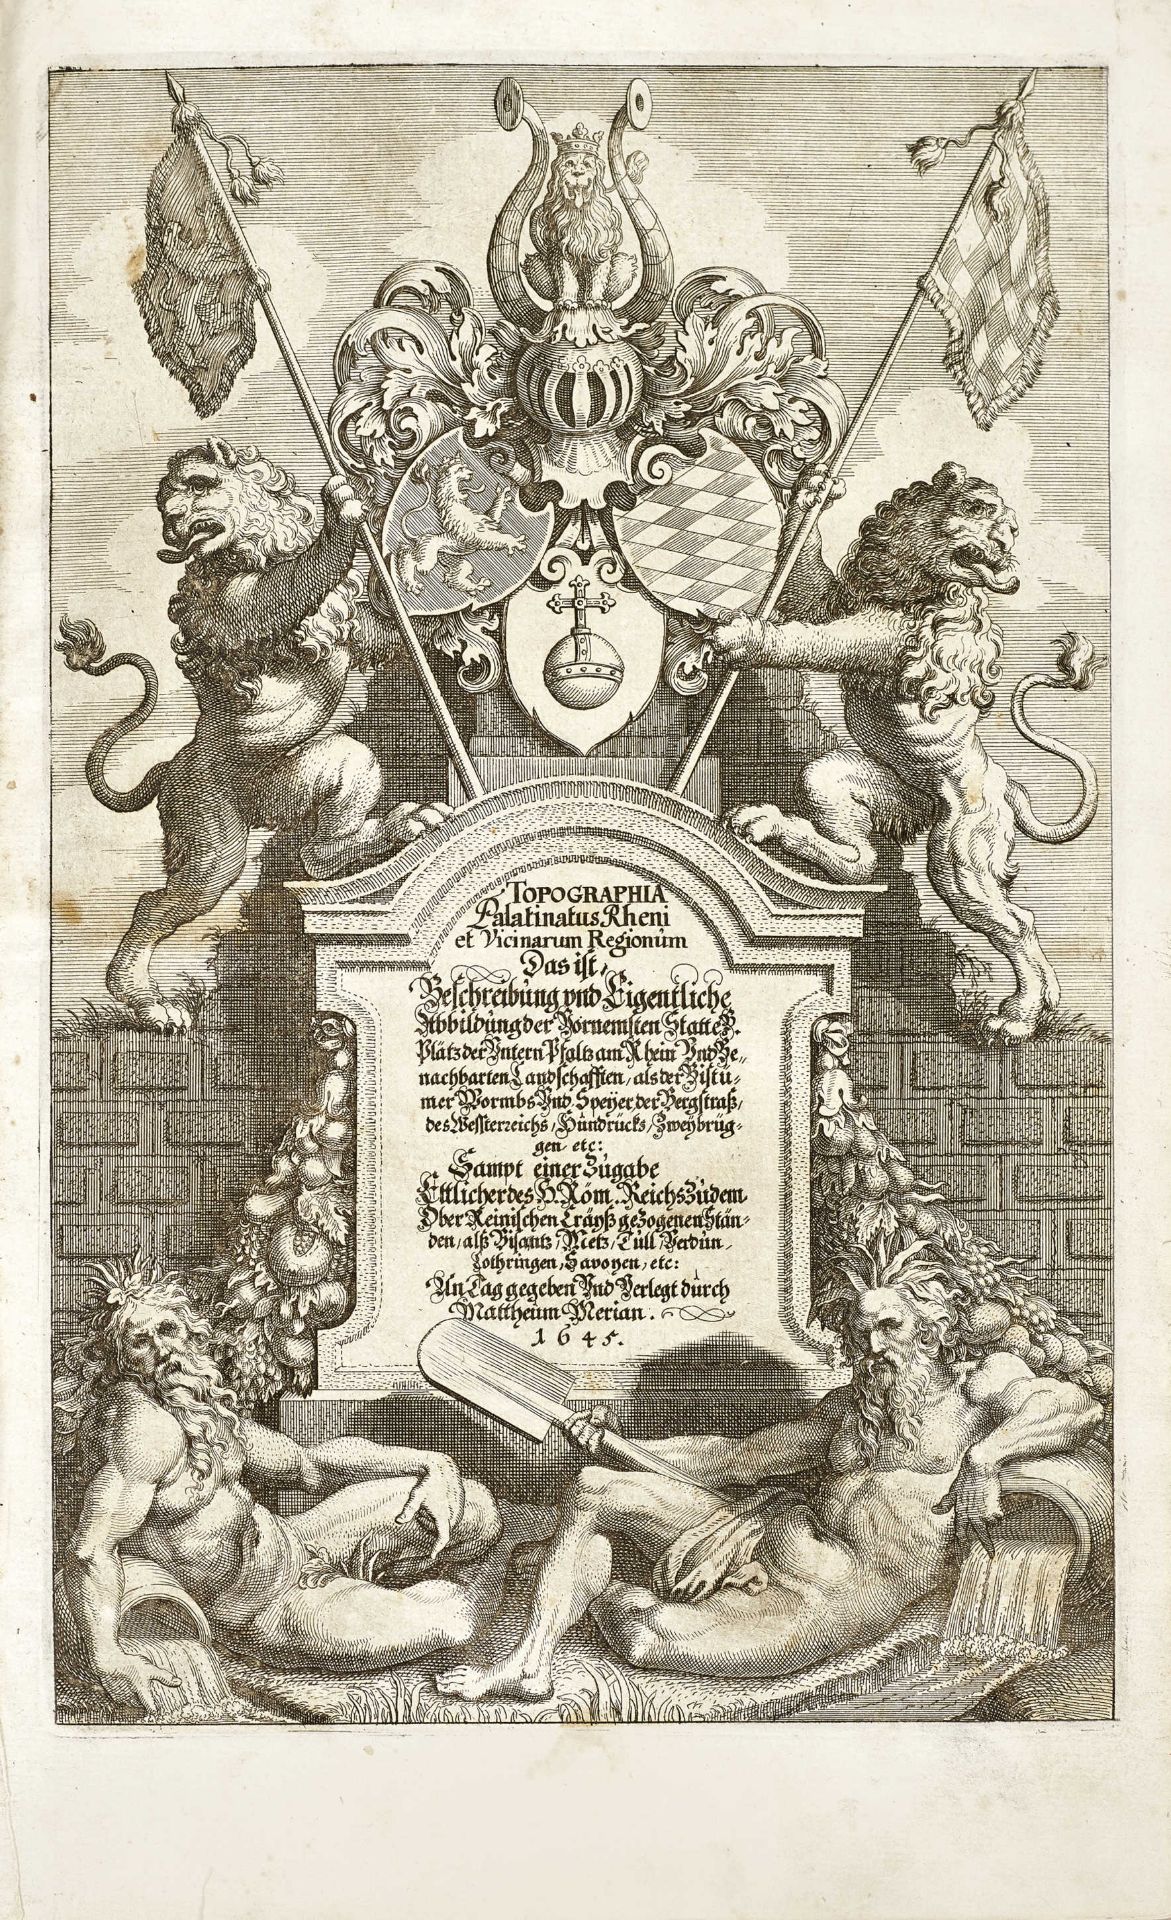 TOPOGRAPHIA
Palatinatus Rheni
et Vicinarum Regionum
Das ist,
Beschreibung vnd Eigentliche
Abbildung der Vornemsten Statte V.
Plätz der Vntern Pfaltz am Rhein Vnd Be„
nachbarten Landschafften, als der Bistü-
mer Wormbs Vnd Speyer, der Bergstraß,
des Wessterreichs, Hundrücks, Zweybrüg-
gen, etc:
Sampt einer Zugabe
Ettlicher des H. Röm. Reichs Zu dem
Ober Reinischen Cräyß gezogenen Stän-
den, alß Bisantz, Metz, Tull, Verdun,
Lothringen, Savoyen, etc:
An Tag gegeben Vnd Verlegt durch
Mattheum Merian.
1645.